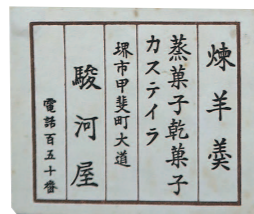 煉羊羹
蒸菓子乾菓子
カステイラ
堺市甲斐町大道
駿河屋
電話百五十番